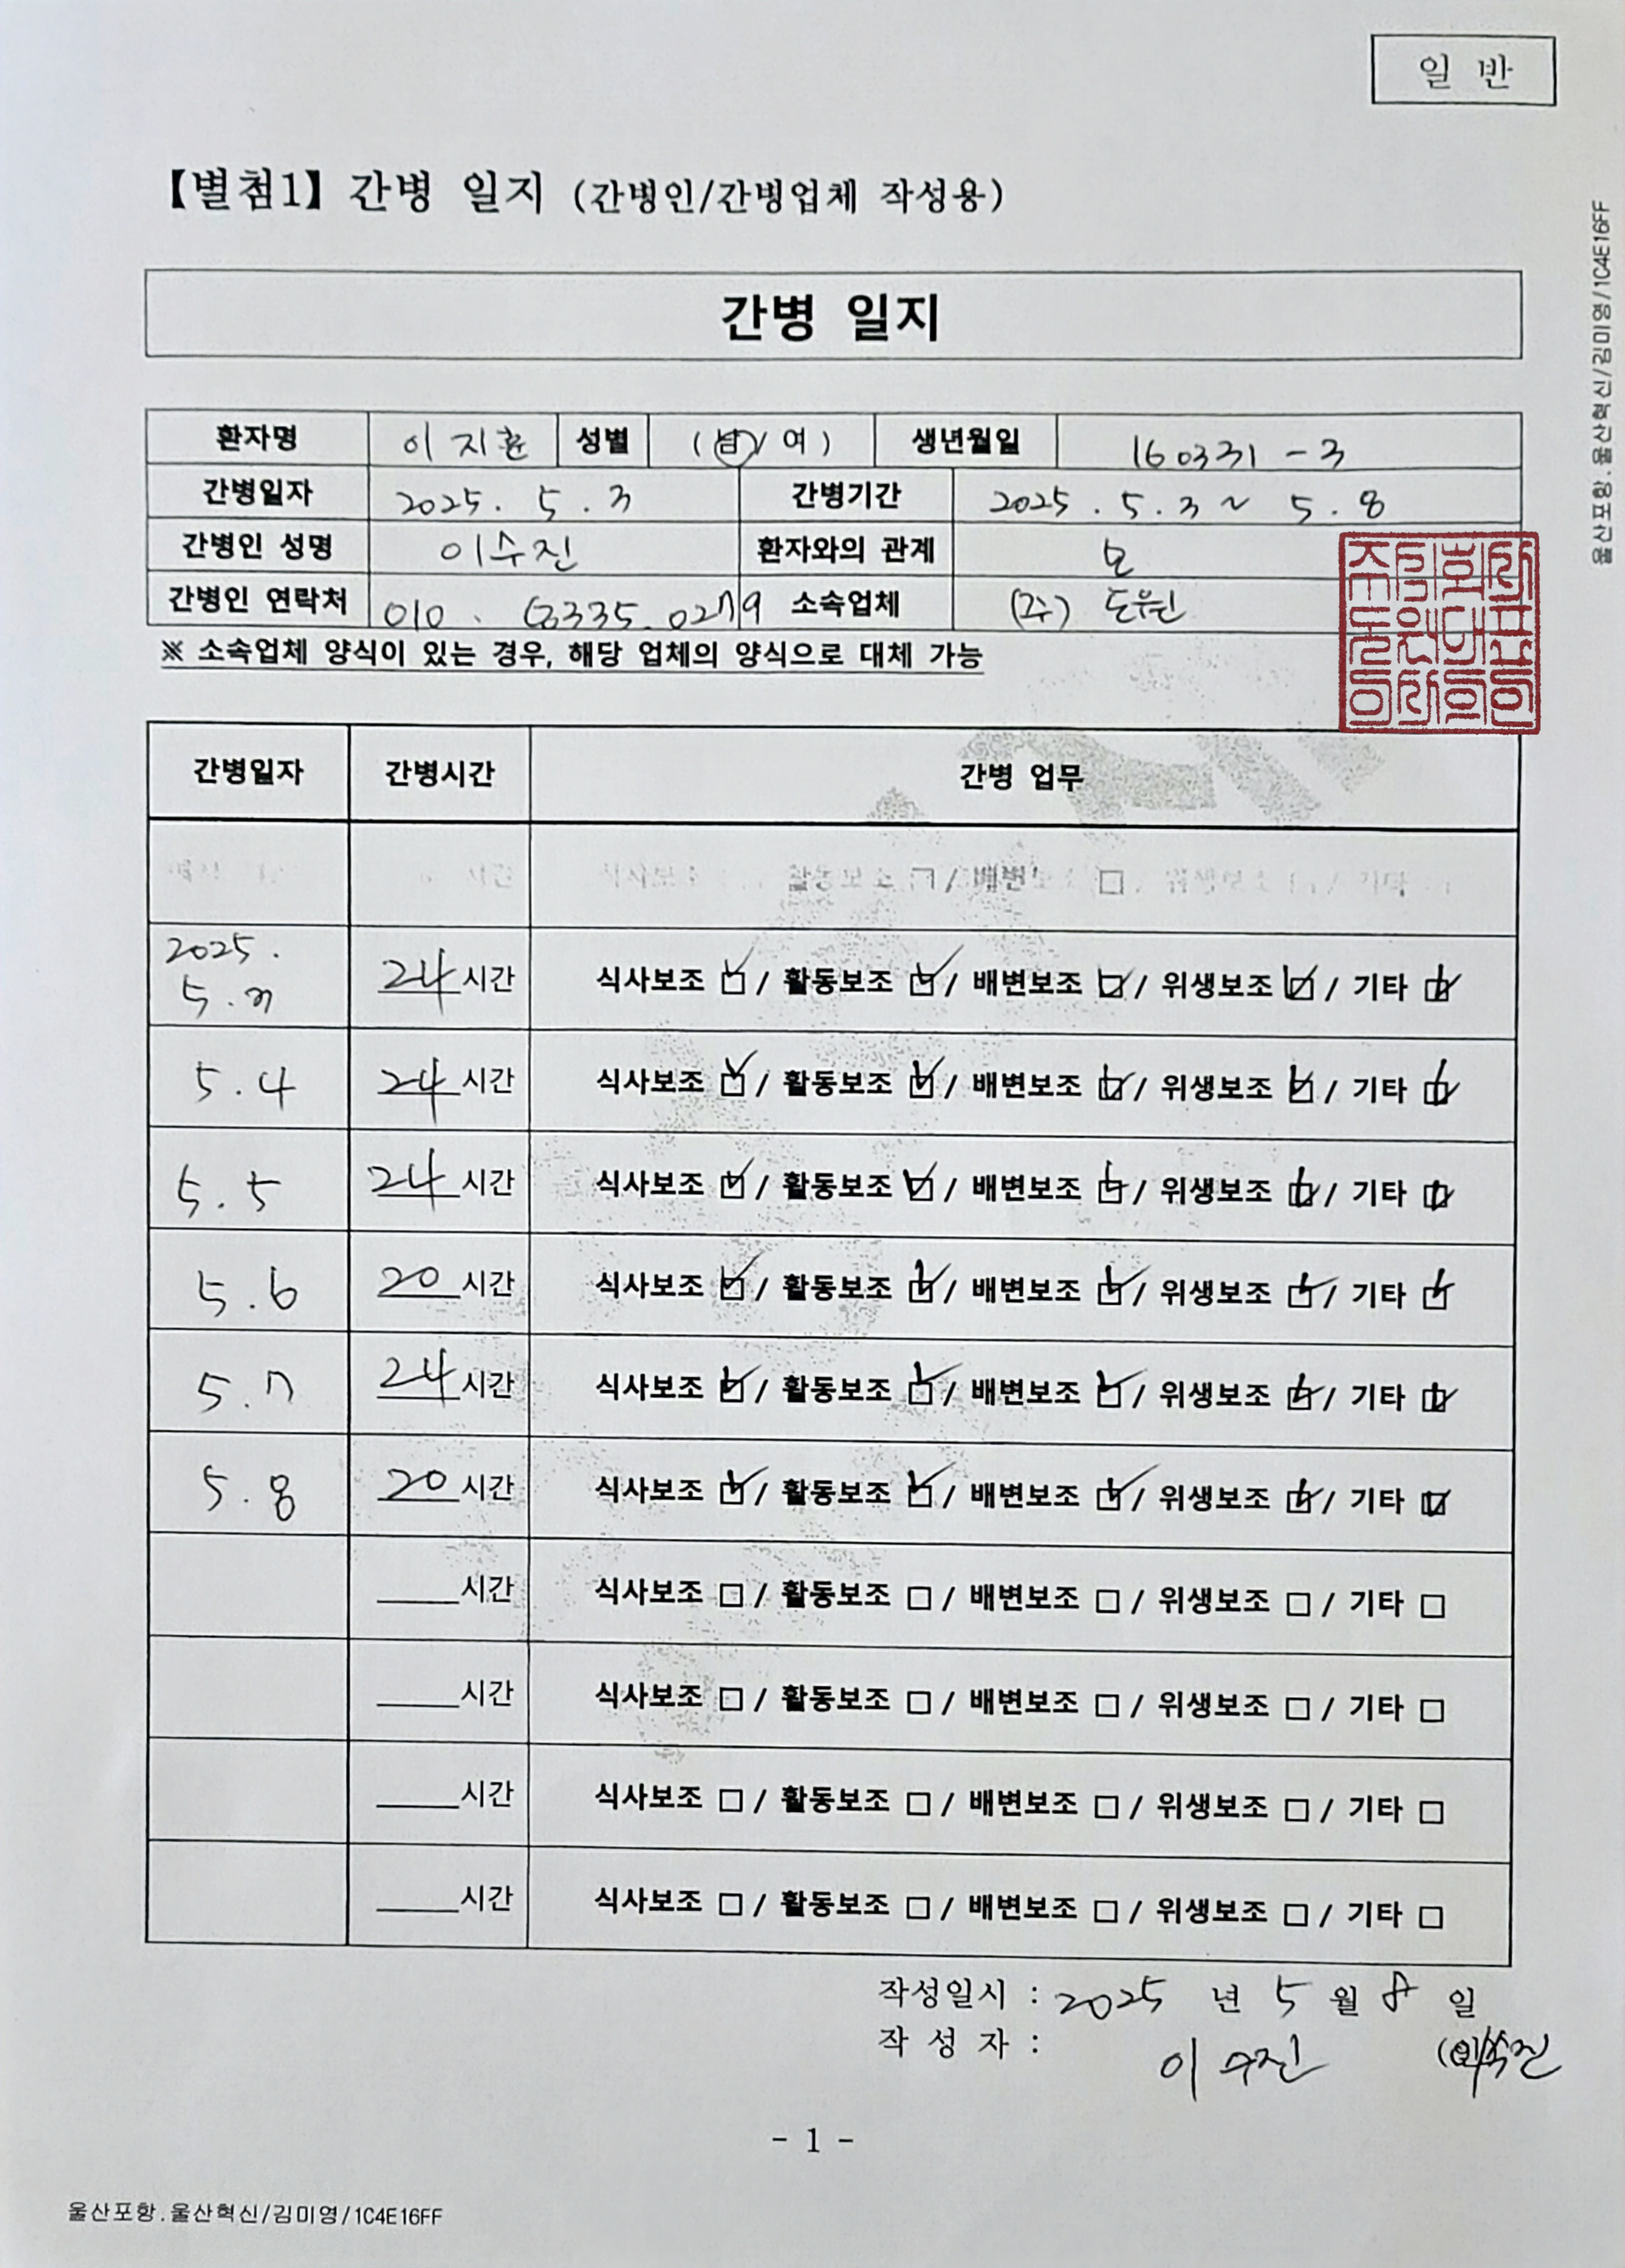 일 반
【별첨1】 간병 일지 (간병인/간병업체 작성용)
간병 일지
환자명 이지훈 성별 (남/여) 생년월일 160331-3
간병일자 2025. 5. 3 간병기간 2025. 5. 3 ~ 5. 8
간병인 성명 이수진 환자와의 관계 모
간병인 연락처 010. 335.0279 소속업체 (주) 도원
※ 소속업체 양식이 있는 경우, 해당 업체의 양식으로 대체 가능
간병일자 간병시간 간병 업무
활동보조 □ / 배변보조 □
2025. 5.3 24시간 식사보조 ☑ / 활동보조 ☑ / 배변보조 ☑ / 위생보조 ☑ / 기타 ☑
5.4 24시간 식사보조 ☑ / 활동보조 ☑ / 배변보조 ☑ / 위생보조 ☑ / 기타 ☑
5.5 24시간 식사보조 ☑ / 활동보조 ☑ / 배변보조 ☑ / 위생보조 ☑ / 기타 ☑
5.6 20시간 식사보조 ☑ / 활동보조 ☑ / 배변보조 ☑ / 위생보조 ☑ / 기타 ☑
5.7 24시간 식사보조 ☑ / 활동보조 ☑ / 배변보조 ☑ / 위생보조 ☑ / 기타 ☑
5.8 20시간 식사보조 ☑ / 활동보조 ☑ / 배변보조 ☑ / 위생보조 ☑ / 기타 ☑
____시간 식사보조 □ / 활동보조 □ / 배변보조 □ / 위생보조 □ / 기타 □
____시간 식사보조 □ / 활동보조 □ / 배변보조 □ / 위생보조 □ / 기타 □
____시간 식사보조 □ / 활동보조 □ / 배변보조 □ / 위생보조 □ / 기타 □
____시간 식사보조 □ / 활동보조 □ / 배변보조 □ / 위생보조 □ / 기타 □
작성일시 : 2025 년 5 월 8 일
작 성 자 : 이수진 이수진
- 1 -
울산포항.울산혁신/김미영/1C4E16FF
울산포항.울산혁신/김미영/1C4E16FF